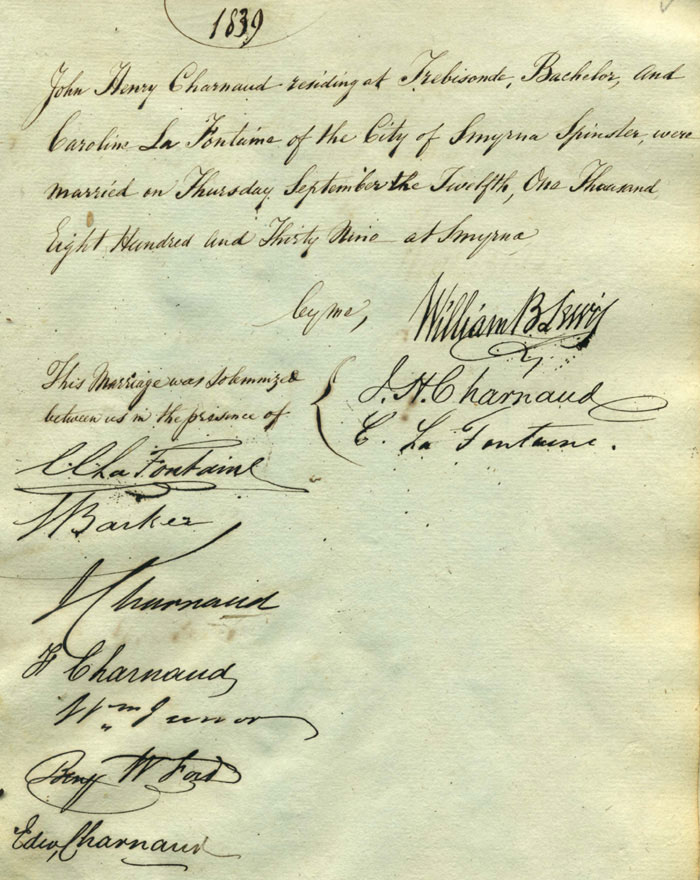 1839
John Henry Charnaud residing at Trebisonde, Bachelor, and
Caroline La Fontaine of the City of Smyrna Spinster, were
married on Thursday September the Twelfth, One Thousand
Eight Hundred and Thirty Nine at Smyrna
by me, William B. Lewis
This Marriage was solemnized
between us in the presence of
J. H. Charnaud
C. La Fontaine.
La Fontaine
Barker
J Charnaud
F Charnaud
Wm Junor
Benj W Ford
Edw, Charnaud